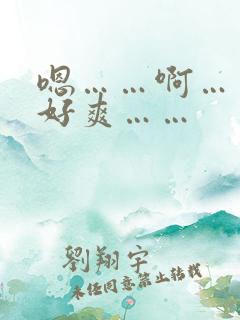 嗯……啊…
好爽……
劉翔宇
未经同意禁止转载